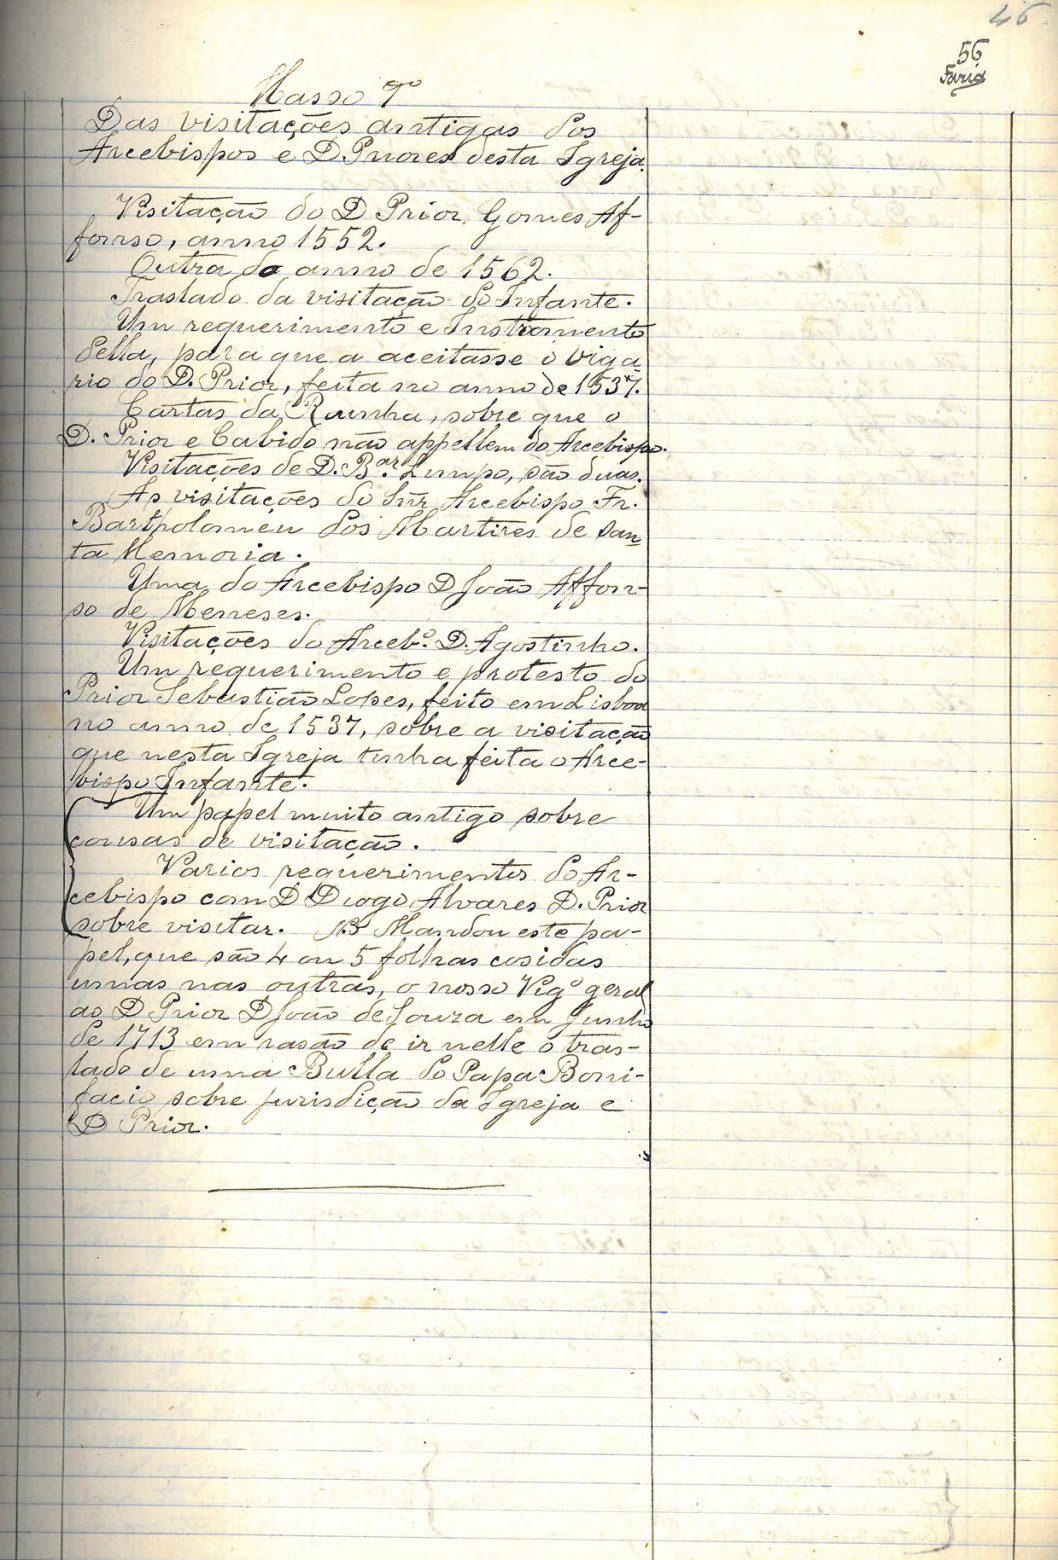 46
56
Faria
Masso 7º
Das visitações antigas dos
Arcebispos e D Priores desta Igreja.
Visitação do D Prior, Gomes Af-
fonso, anno 1552.
Outra do anno de 1562.
Traslado da visitação do Infante.
Um requerimento e Instromento
della, para que a aceitasse o viga
rio do D. Prior, feita no anno de 1537.
Cartas da Rainha, sobre que o
D. Prior e Cabido não appellem do Arcebispo.
Visitações de D. B.ar Limpo, são duas.
As visitações do Snr Arcebispo Fr.
Bartholomeu dos Martires de San
ta Memoria.
Uma do Arcebispo D João Affon-
so de Meneses.
Visitações do Arceb.º D. Agostinho.
Um requerimento e protesto do
Prior Sebastião Lopes, feito em Lisboa
no anno de 1537, sobre a visitação
que nesta Igreja tinha feita o Arce-
bispo Infante.
Um papel muito antigo sobre
cousas de visitação.
Varios requerimentos do Ar-
cebispo com D Diogo Alvares D. Prior
sobre visitar. Mandou este pa-
pel, que são 4 ou 5 folhas cosidas
umas nas outras, o nosso Vigº geral
ao D Prior D João de Souza em Junho
de 1713 em rasão de ir nelle o tras-
lado de uma Bulla do Papa Boni-
facio sobre jurisdição da Igreja e
D Prior.